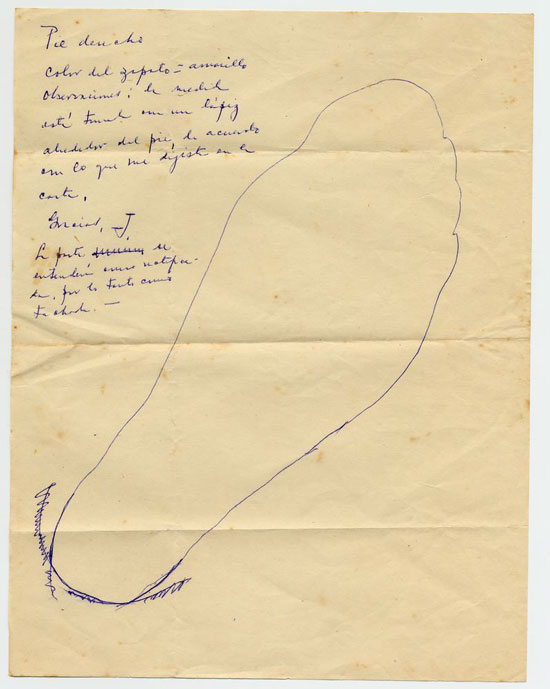 Pie derecho
Color del zapato = amarillo
Observaciones: la medida
está tomada con un lápiz
alrededor del pie, de acuerdo
con lo que me dijiste en la
carta.
Gracias, J.
La parte se
entenderá como
da, por lo tanto como
tachada. —